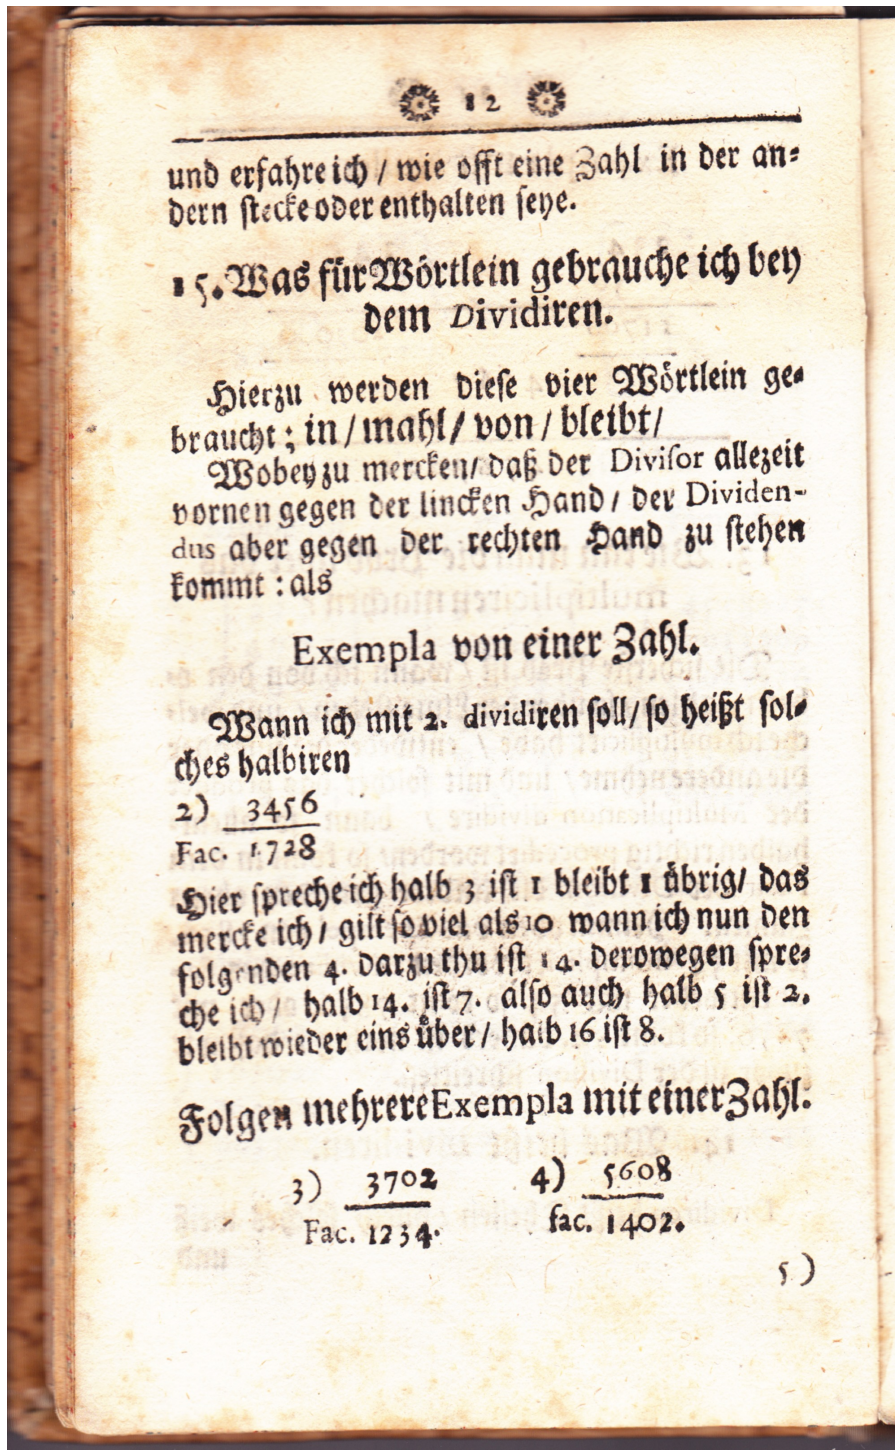 12
und erfahre ich / wie offt eine Zahl in der an=
dern stecke oder enthalten seye.
15. Was für Wörtlein gebrauche ich bey
dem Dividiren.
Hierzu werden diese vier Wörtlein ge=
braucht ; in / mahl / von / bleibt /
Wobey zu mercken / daß der Divisor allezeit
vornen gegen der lincken Hand / der Dividen-
dus aber gegen der rechten Hand zu stehen
kommt : als
Exempla von einer Zahl.
Wann ich mit 2. dividiren soll / so heißt sol=
ches halbiren
2) 3456
Fac. 1728
Hier spreche ich halb 3 ist 1 bleibt 1 übrig / das
mercke ich / gilt so viel als 10 wann ich nun den
folgenden 4. darzu thu ist 14. derowegen spre=
che ich / halb 14. ist 7. also auch halb 5 ist 2.
bleibt wieder eins über / halb 16 ist 8.
Folgen mehrere Exempla mit einer Zahl.
3) 3702 4) 5608
Fac. 1234. fac. 1402.
5)